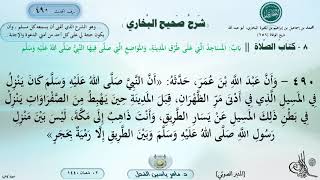 ٤٩٠
شرح صحيح البخاري
٨ - كتاب الصلاة
باب: المساجد التي على طرق المدينة، والمواضع التي صلى فيها النبي صلى الله عليه وسلم
٤٩٠ - وَأَنَّ عَبْدَ اللَّهِ بْنَ عُمَرَ، حَدَّثَهُ: «أَنَّ النَّبِيَّ صَلَّى اللهُ عَلَيْهِ وَسَلَّمَ كَانَ يَنْزِلُ
فِي الْمَسِيلِ الَّذِي فِي أَدْنَى مَرِّ الظَّهْرَانِ، قِبَلَ الْمَدِينَةِ حِينَ يَهْبِطُ مِنَ الصَّفْرَاوَاتِ يَنْزِلُ
فِي بَطْنِ ذَلِكَ الْمَسِيلِ عَنْ يَسَارِ الطَّرِيقِ، وَأَنْتَ ذَاهِبٌ إِلَى مَكَّةَ، لَيْسَ بَيْنَ مَنْزِلِ
رَسُولِ اللَّهِ صَلَّى اللهُ عَلَيْهِ وَسَلَّمَ وَبَيْنَ الطَّرِيقِ إِلَّا رَمْيَةٌ بِحَجَرٍ»
د. ماهر ياسين الفحل